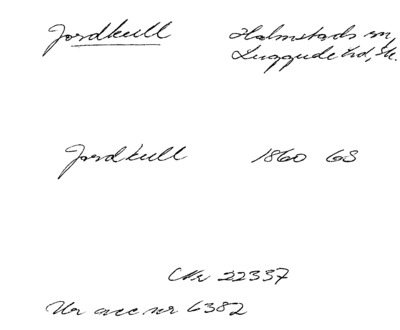 Jordkull Halmstads sn,
Luggude hd, Sk.
Jordkull 1860 GS
CNr 22337
Ur acc nr 6382